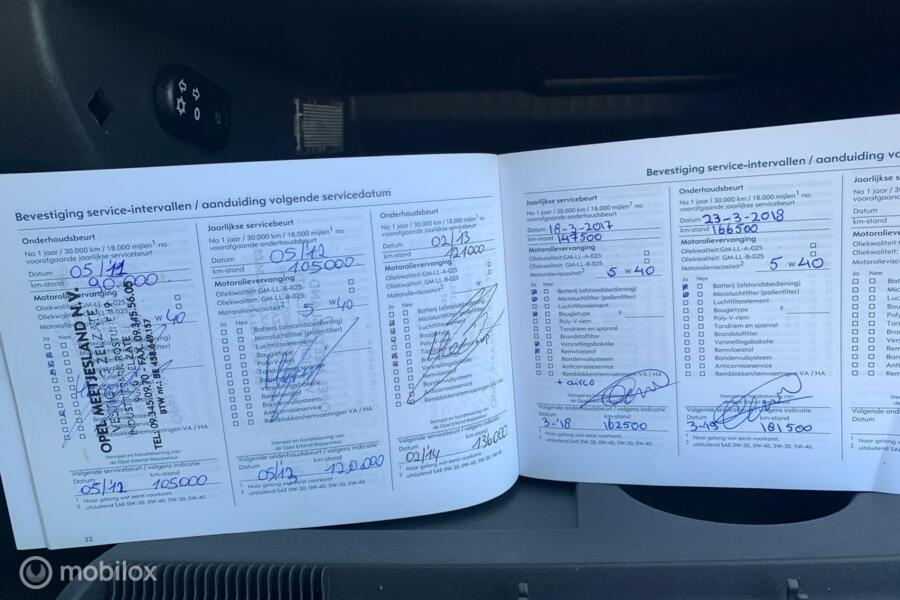 Bevestiging service-intervallen / aanduiding volgende servicedatum
Onderhoudsbeurt
Na 1 jaar / 30.000 km / 18.000 mijlen1 na
voorafgaande jaarlijkse servicebeurt
Datum 05/11
km-stand 90.000
Motorolievervanging
Oliekwaliteit: GM-LL-A-025
GM-LL-B-025
W 40
Ja Nee
OPEL MEETJESLAND N.V.
TEL: 09.345.09.70 - FAX 09.345.56.05
Remblokken/remvoeringen VA / HA
Stempel en handtekening van
de Opel Erkend Reparateur
Volgende servicebeurt / volgens indicatie
Datum km-stand
05/12 105000
1 Naar gelang wat eerst voorkomt.
2 uitsluitend SAE 0W-30, 0W-40, 5W-30, 5W-40.
22
Jaarlijkse servicebeurt
Na 1 jaar / 30.000 km / 18.000 mijlen1 na
voorafgaande onderhoudsbeurt
Datum 05/12
km-stand 105000
Motorolievervanging
Oliekwaliteit: GM-LL-A-025
Oliekwaliteit: GM-LL-B-025
Motorolieviscositeit2 5 W 40
Ja Nee
Batterij (afstandsbediening)
Microluchtfilter (pollenfilter)
Luchtfilterelement
Remvloeistof
Bandenvulsysteem
Anticorrosieservice
Remblokken/remvoeringen VA / HA
Stempel en handtekening van
de Opel Erkend Reparateur
Volgende onderhoudsbeurt / volgens indicatie
Datum km-stand
05/13 120.000
1 Naar gelang wat eerst voorkomt.
2 uitsluitend SAE 0W-30, 0W-40, 5W-30, 5W-40.
Onderhoudsbeurt
Na 1 jaar / 30.000 km / 18.000 mijlen1 na
voorafgaande jaarlijkse servicebeurt
Datum 02/13
km-stand 121000
Motorolievervanging
Oliekwaliteit: GM-LL-A-025
Oliekwaliteit: GM-LL-B-025
Motorolieviscositeit2
Ja Nee
Batterij (afstandsbediening)
Microluchtfilter (pollenfilter)
Luchtfilterelement
Bandenvulsysteem
Anticorrosieservice
Remblokken/remvoeringen VA / HA
Stempel en handtekening van
de Opel Erkend Reparateur
Volgende servicebeurt / volgens indicatie
Datum km-stand
02/14 136000
1 Naar gelang wat eerst voorkomt.
2 uitsluitend SAE 0W-30, 0W-40, 5W-30, 5W-40.
Bevestiging service-intervallen / aanduiding vo
Jaarlijkse servicebeurt
Na 1 jaar / 30.000 km / 18.000 mijlen1 na
voorafgaande onderhoudsbeurt
Datum 18-3-2017
km-stand 147500
Motorolievervanging
Oliekwaliteit: GM-LL-A-025
Oliekwaliteit: GM-LL-B-025
Motorolieviscositeit2 5 W 40
Ja Nee
Batterij (afstandsbediening)
Microluchtfilter (pollenfilter)
Luchtfilterelement
Bougietype F
Poly-V-riem
Tandriem en spanrol
Brandstoffilter
Versnellingsbakolie
Remvloeistof
Bandenvulsysteem
Anticorrosieservice
Remblokken/remvoeringen VA / HA
+ airco
Stempel en handtekening van
de Opel Erkend Reparateur
Volgende onderhoudsbeurt / volgens indicatie
Datum km-stand
3-18 162500
1 Naar gelang wat eerst voorkomt.
2 uitsluitend SAE 0W-30, 0W-40, 5W-30, 5W-40.
Onderhoudsbeurt
Na 1 jaar / 30.000 km / 18.000 mijlen1 na
voorafgaande jaarlijkse servicebeurt
Datum 23-3-2018
km-stand 166500
Motorolievervanging
Oliekwaliteit: GM-LL-A-025
Oliekwaliteit: GM-LL-B-025
Motorolieviscositeit2 5 W 40
Ja Nee
Batterij (afstandsbediening)
Microluchtfilter (pollenfilter)
Luchtfilterelement
Bougietype F
Poly-V-riem
Tandriem en spanrol
Brandstoffilter
Versnellingsbakolie
Remvloeistof
Bandenvulsysteem
Anticorrosieservice
Remblokken/remvoeringen VA / HA
Stempel en handtekening van
Volgende servicebeurt / volgens indicatie
Datum km-stand
3-19 181500
1 Naar gelang wat eerst voorkomt.
2 uitsluitend SAE 0W-30, 0W-40, 5W-30, 5W-40.
Jaarlijkse s
Na 1 jaar / 30
voorafgaande
Datum
km-stand
Motorolieve
Oliekwaliteit:
Oliekwaliteit:
Motorolievisc
Ja Nee
Volgende ond
Datum
1 Naar gelang
2 uitsluitend SA
mobilox